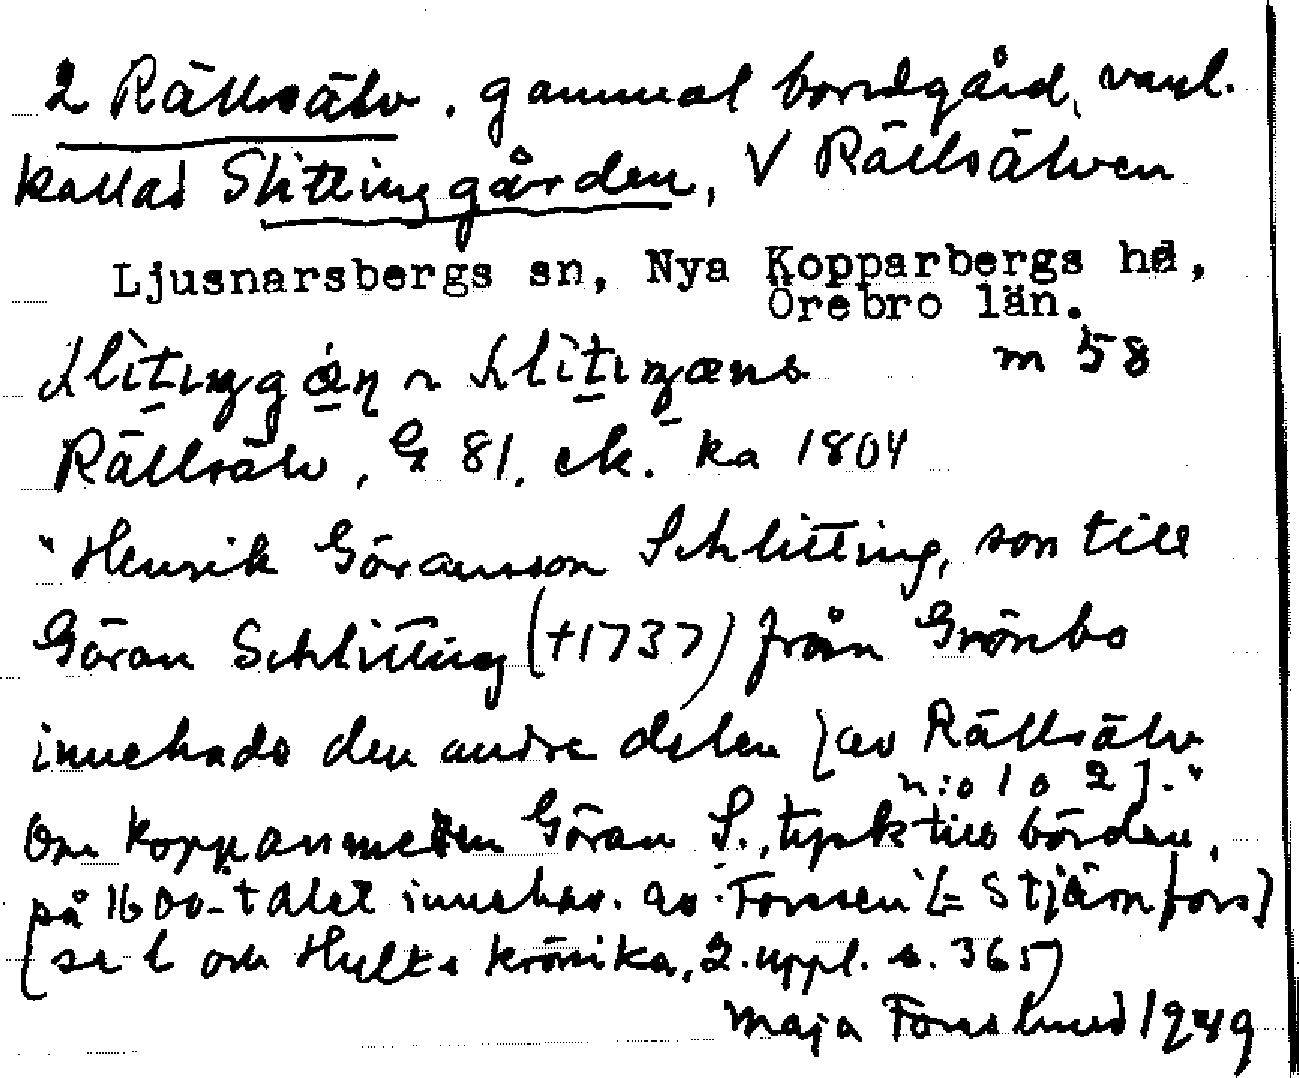 2 Rällsälv. gammal bondgård, vanl.
kallad Slittinggården, V Rällsälven
Ljusnarsbergs sn, Nya Kopparbergs hd,
Örebro län.
m 58
Rällsälv, G 81. ek. ka 1804
"Henrik Göransson Schlitting, son till
Göran Schlitting (†1737) från Grönbo
innehade den andra delen [av Rällsälv
n:o 1 o 2]."
Om Göran S., tysk till börden,
på 1600-talet innehav. av 'Forssen' (= Stjärnfors)
(se Hults krönika, 2. uppl. s. 365)
Maja Forslund 1949